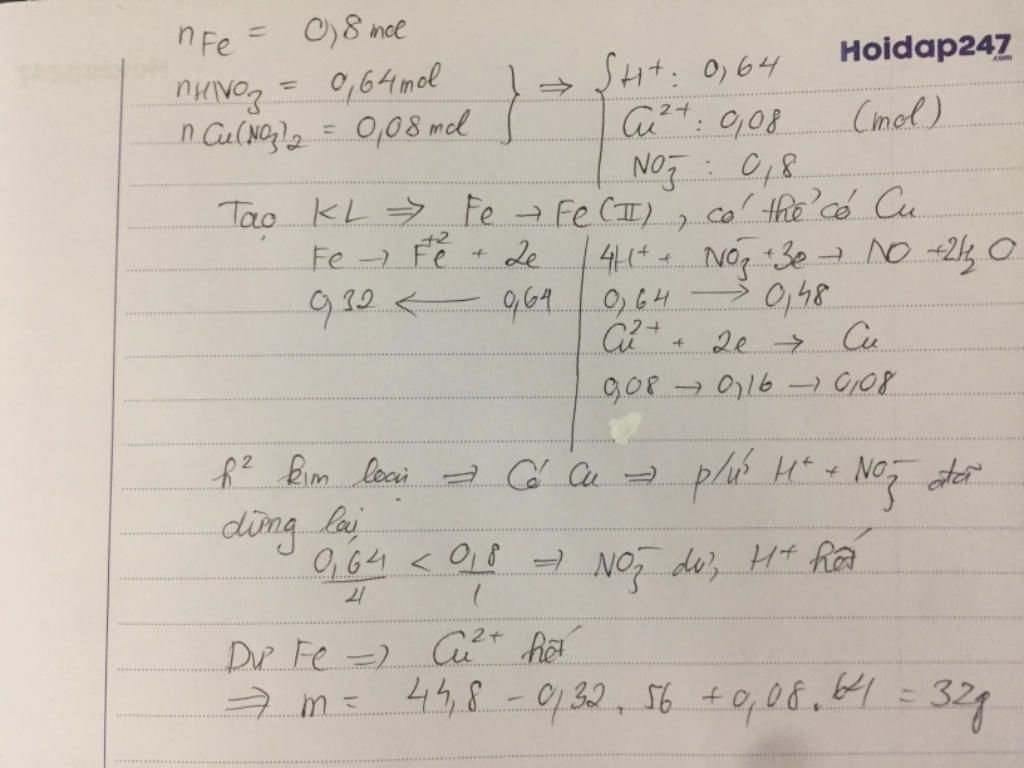 nFe = 0,8 mol
Hoidap247.com
nHNO₃ = 0,64 mol
nCu(NO₃)₂ = 0,08 mol
} ⇒ { H⁺ : 0,64
Cu²⁺ : 0,08 (mol)
NO₃⁻ : 0,8
Tạo KL ⇒ Fe → Fe(II), có thể có Cu
Fe → Fe⁺² + 2e | 4H⁺ + NO₃⁻ + 3e → NO + 2H₂O
0,32 ← 0,64 | 0,64 → 0,48
Cu²⁺ + 2e → Cu
0,08 → 0,16 → 0,08
h² kim loại ⇒ Có Cu ⇒ p/ứ H⁺ + NO₃⁻ đã
dừng lại
0,64/4 < 0,8/1 ⇒ NO₃⁻ dư, H⁺ hết
Dư Fe ⇒ Cu²⁺ hết
⇒ m = 44,8 - 0,32 . 56 + 0,08 . 64 = 32g